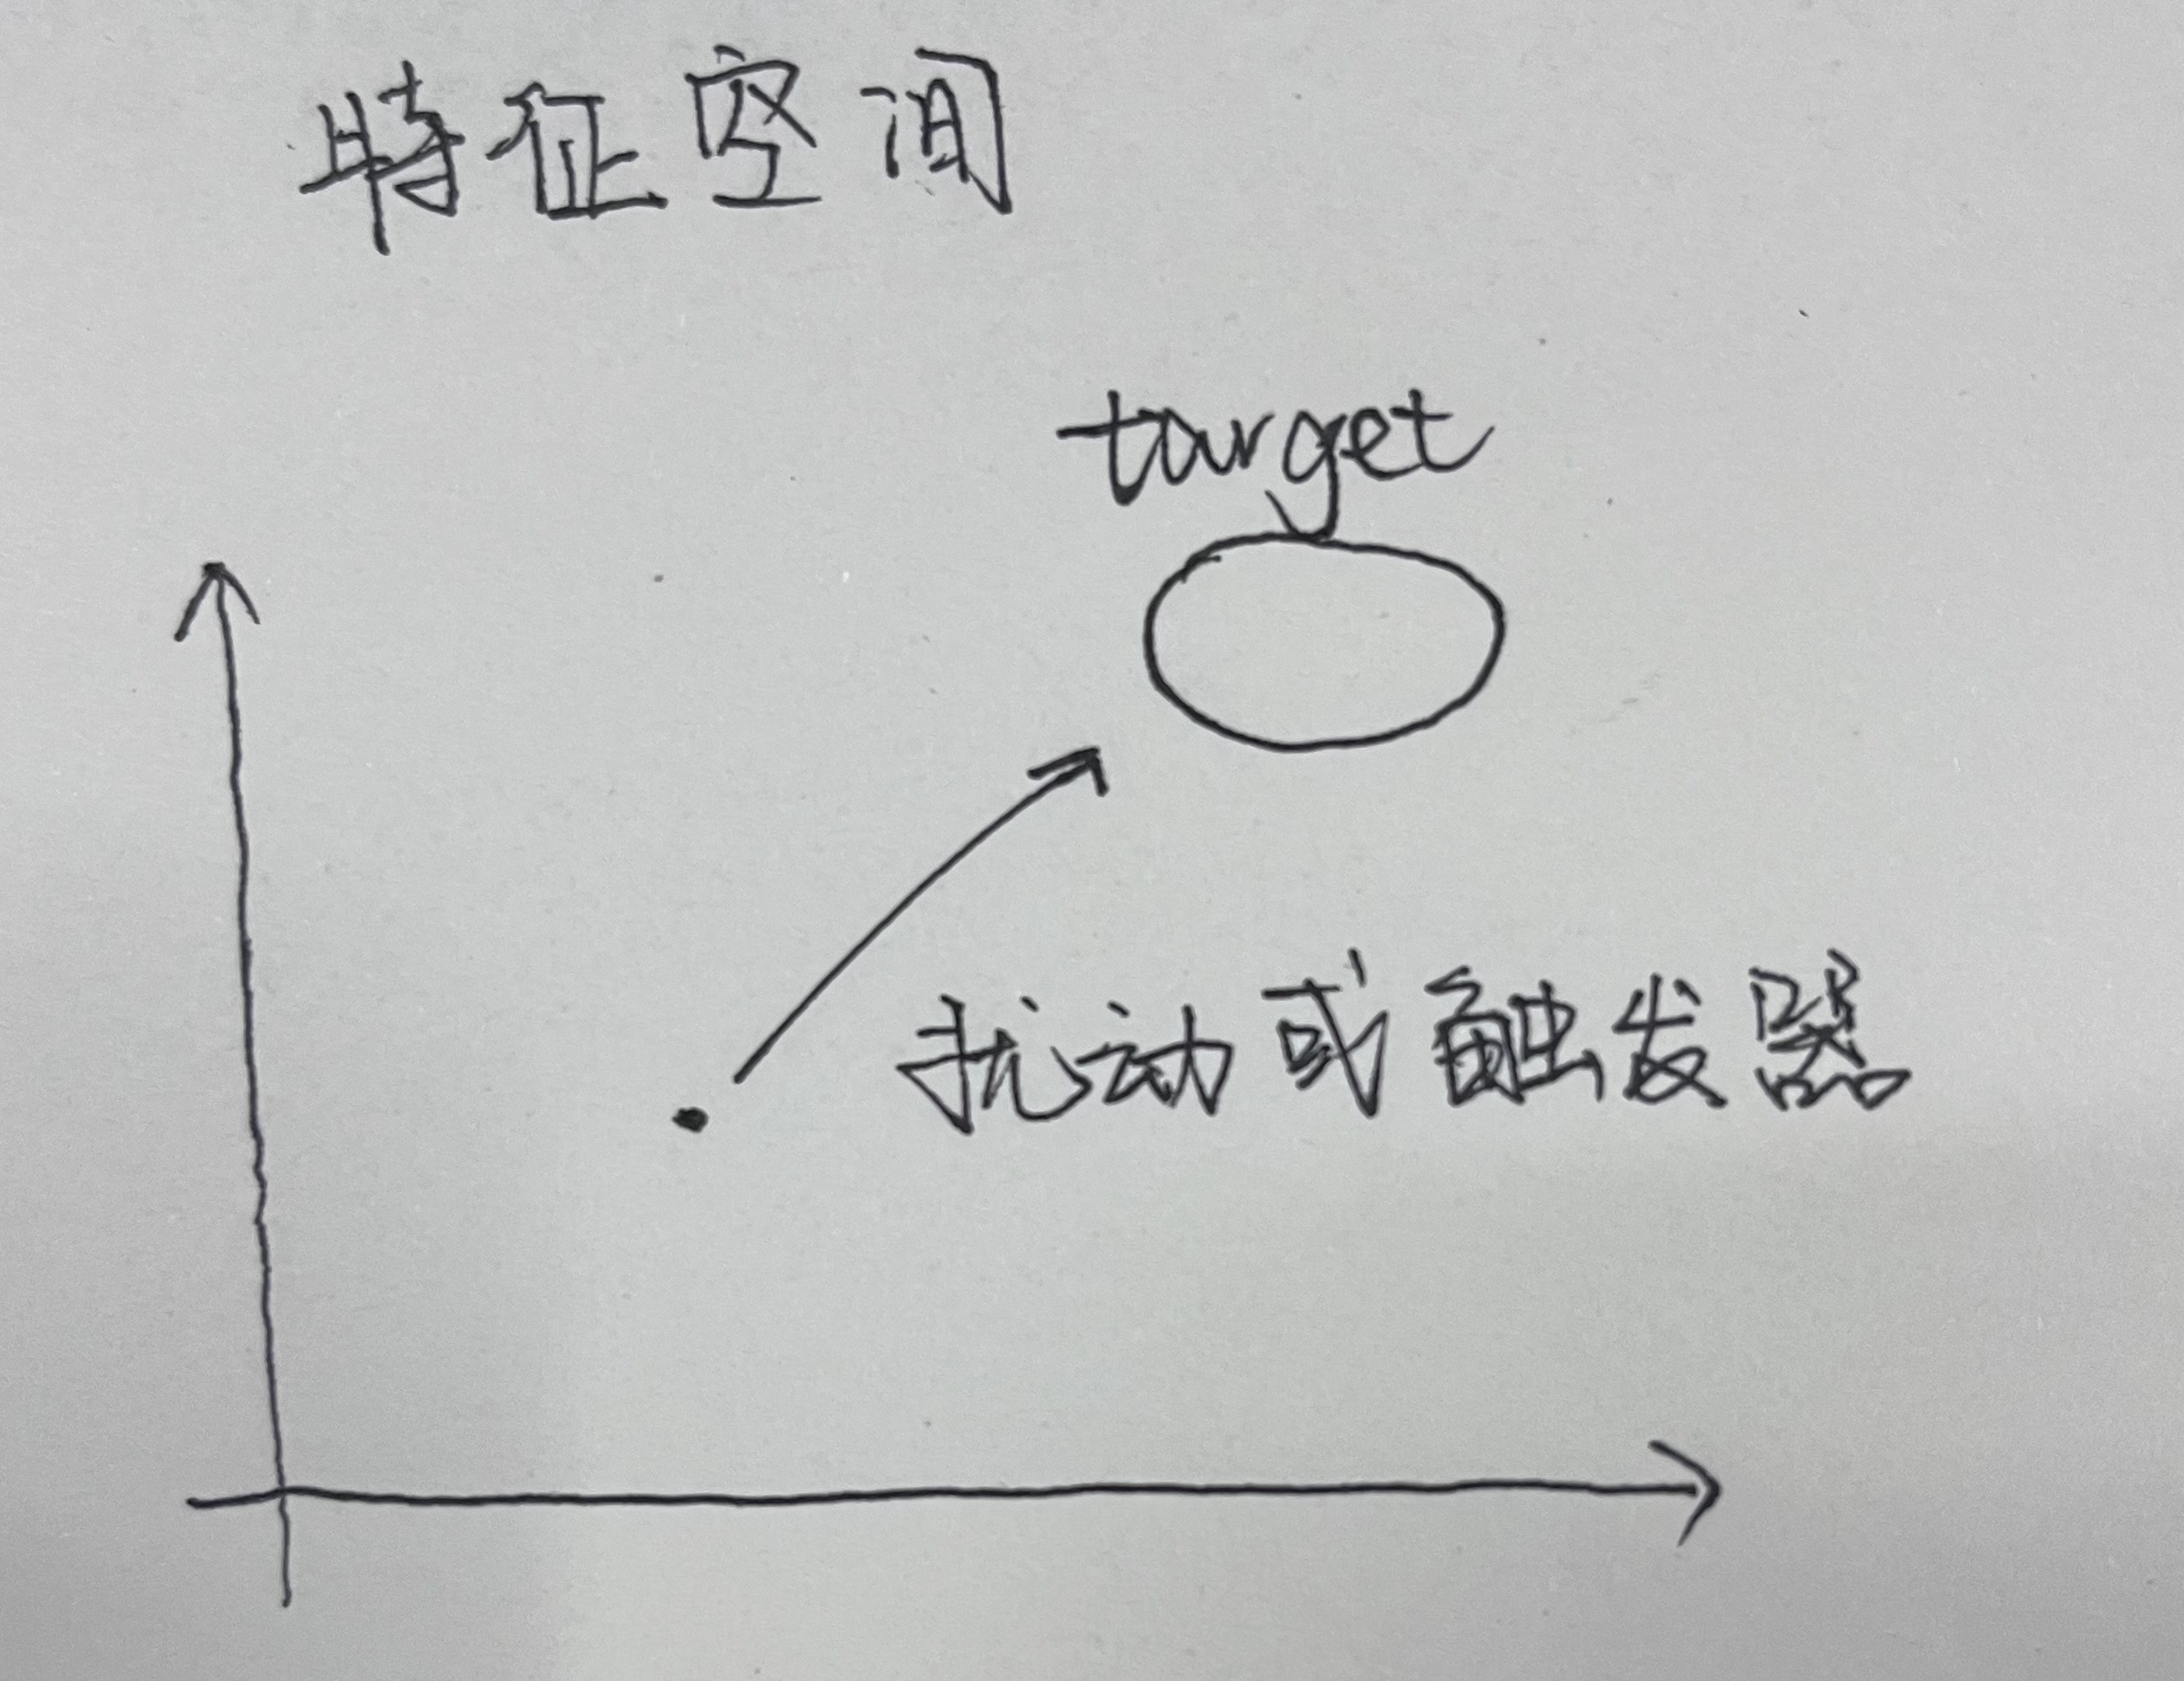 特征空间
target
扰动或触发器